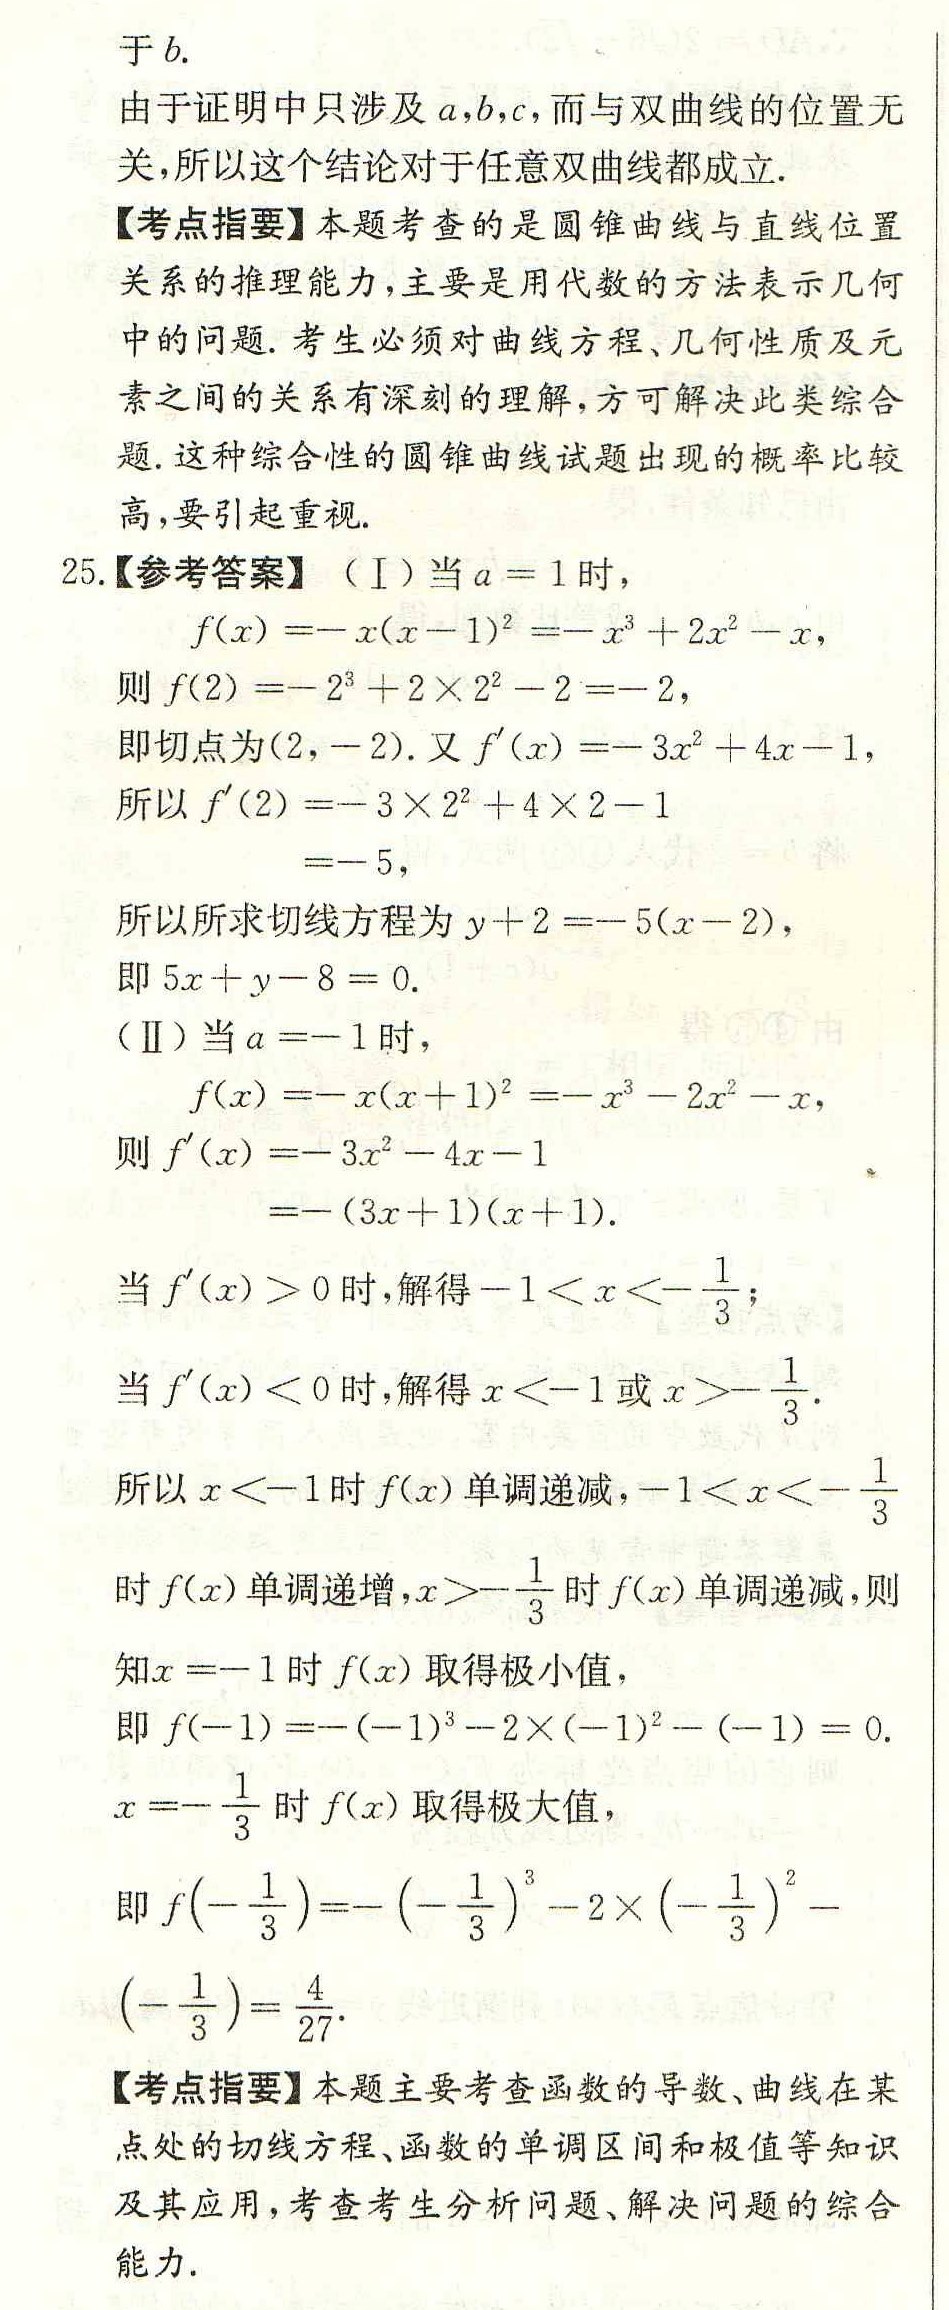 于 b.
由于证明中只涉及 a,b,c, 而与双曲线的位置无
关,所以这个结论对于任意双曲线都成立.
【考点指要】本题考查的是圆锥曲线与直线位置
关系的推理能力,主要是用代数的方法表示几何
中的问题. 考生必须对曲线方程、几何性质及元
素之间的关系有深刻的理解,方可解决此类综合
题. 这种综合性的圆锥曲线试题出现的概率比较
高,要引起重视.
25.【参考答案】(Ⅰ)当 a = 1 时,
f(x) =− x(x − 1)² =− x³ + 2x² − x,
则 f(2) =− 2³ + 2 × 2² − 2 =− 2,
即切点为(2, − 2). 又 f′(x) =− 3x² + 4x − 1,
所以 f′(2) =− 3 × 2² + 4 × 2 − 1
=− 5,
所以所求切线方程为 y + 2 =− 5(x − 2),
即 5x + y − 8 = 0.
(Ⅱ)当 a =− 1 时,
f(x) =− x(x + 1)² =− x³ − 2x² − x,
则 f′(x) =− 3x² − 4x − 1
=− (3x + 1)(x + 1).
当 f′(x) > 0 时,解得 − 1 < x <− 1/3;
当 f′(x) < 0 时,解得 x <− 1 或 x >− 1/3.
所以 x <− 1 时 f(x) 单调递减, − 1 < x < − 1/3
时 f(x) 单调递增,x >− 1/3 时 f(x) 单调递减,则
知x =− 1 时 f(x) 取得极小值,
即 f(−1) =− (−1)³ − 2×(−1)² − (−1) = 0.
x =− 1/3 时 f(x) 取得极大值,
即 f(− 1/3) =− (− 1/3)³ − 2 × (− 1/3)² −
(− 1/3) = 4/27.
【考点指要】本题主要考查函数的导数、曲线在某
点处的切线方程、函数的单调区间和极值等知识
及其应用,考查考生分析问题、解决问题的综合
能力.